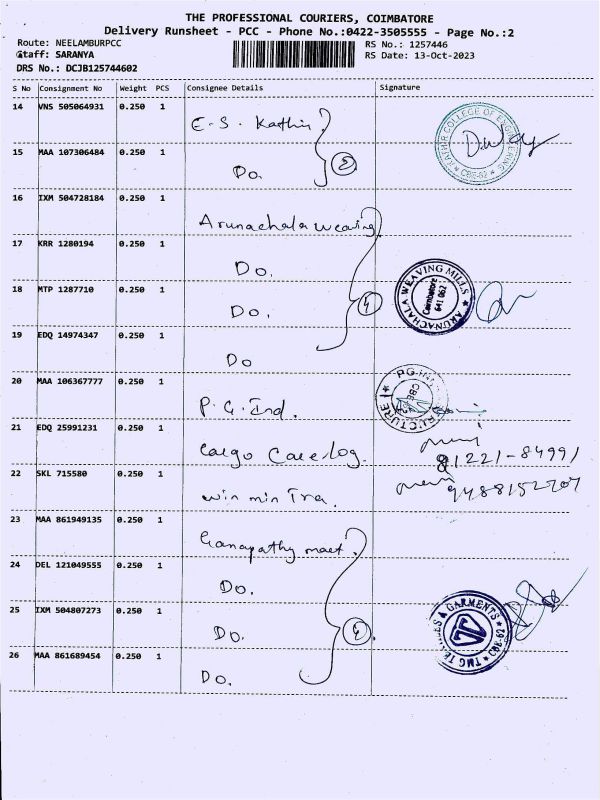 THE PROFESSIONAL COURIERS, COIMBATORE
Delivery Runsheet - PCC - Phone No.:0422-3505555 - Page No.:2
Route: NEELAMBURPCC RS No.: 1257446
Staff: SARANYA RS Date: 13-Oct-2023
DRS No.: DCJB125744602
S No Consignment No Weight PCS Consignee Details Signature
14 VNS 505064931 0.250 1 E-S. Kathir KATHIR COLLEGE OF ENGINEERING * CBE-62 *
15 MAA 107306484 0.250 1 Do. 2
16 IXM 504728184 0.250 1 Arunachala weaving
17 KRR 1280194 0.250 1 Do.
18 MTP 1287710 0.250 1 Do. 4 ARUNACHALA WEAVING MILLS Coimbatore 641 062
19 EDQ 14974347 0.250 1 Do
20 MAA 106367777 0.250 1 P.G. Ind.
21 EDQ 25991231 0.250 1 Cargo Care log. 81221-84991
22 SKL 715580 0.250 1 win min Tra.
23 MAA 861949135 0.250 1 Ganapathy
24 DEL 121049555 0.250 1 Do.
25 IXM 504807273 0.250 1 Do. 4 & GARMENTS * CBE-62 * TMG
26 MAA 861689454 0.250 1 Do.